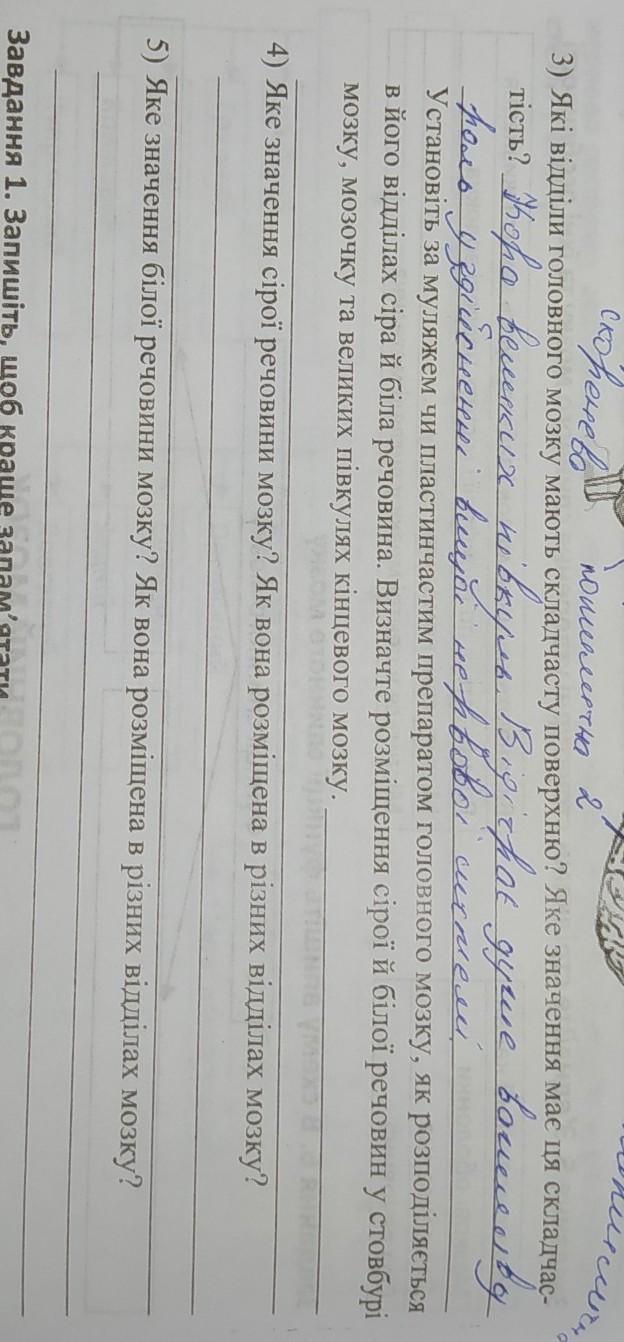 скоренева
потилична
3) Які відділи головного мозку мають складчасту поверхню? Яке значення має ця складчас-
тість? Кора великих півкуль. Відіграє дуже важливу
роль у здійсненні вищої нервової системи
Установіть за муляжем чи пластинчастим препаратом головного мозку, як розподіляється
в його відділах сіра й біла речовина. Визначте розміщення сірої й білої речовин у стовбурі
мозку, мозочку та великих півкулях кінцевого мозку.
4) Яке значення сірої речовини мозку? Як вона розміщена в різних відділах мозку?
5) Яке значення білої речовини мозку? Як вона розміщена в різних відділах мозку?
Завдання 1. Запишіть, щоб краще запам'ятати